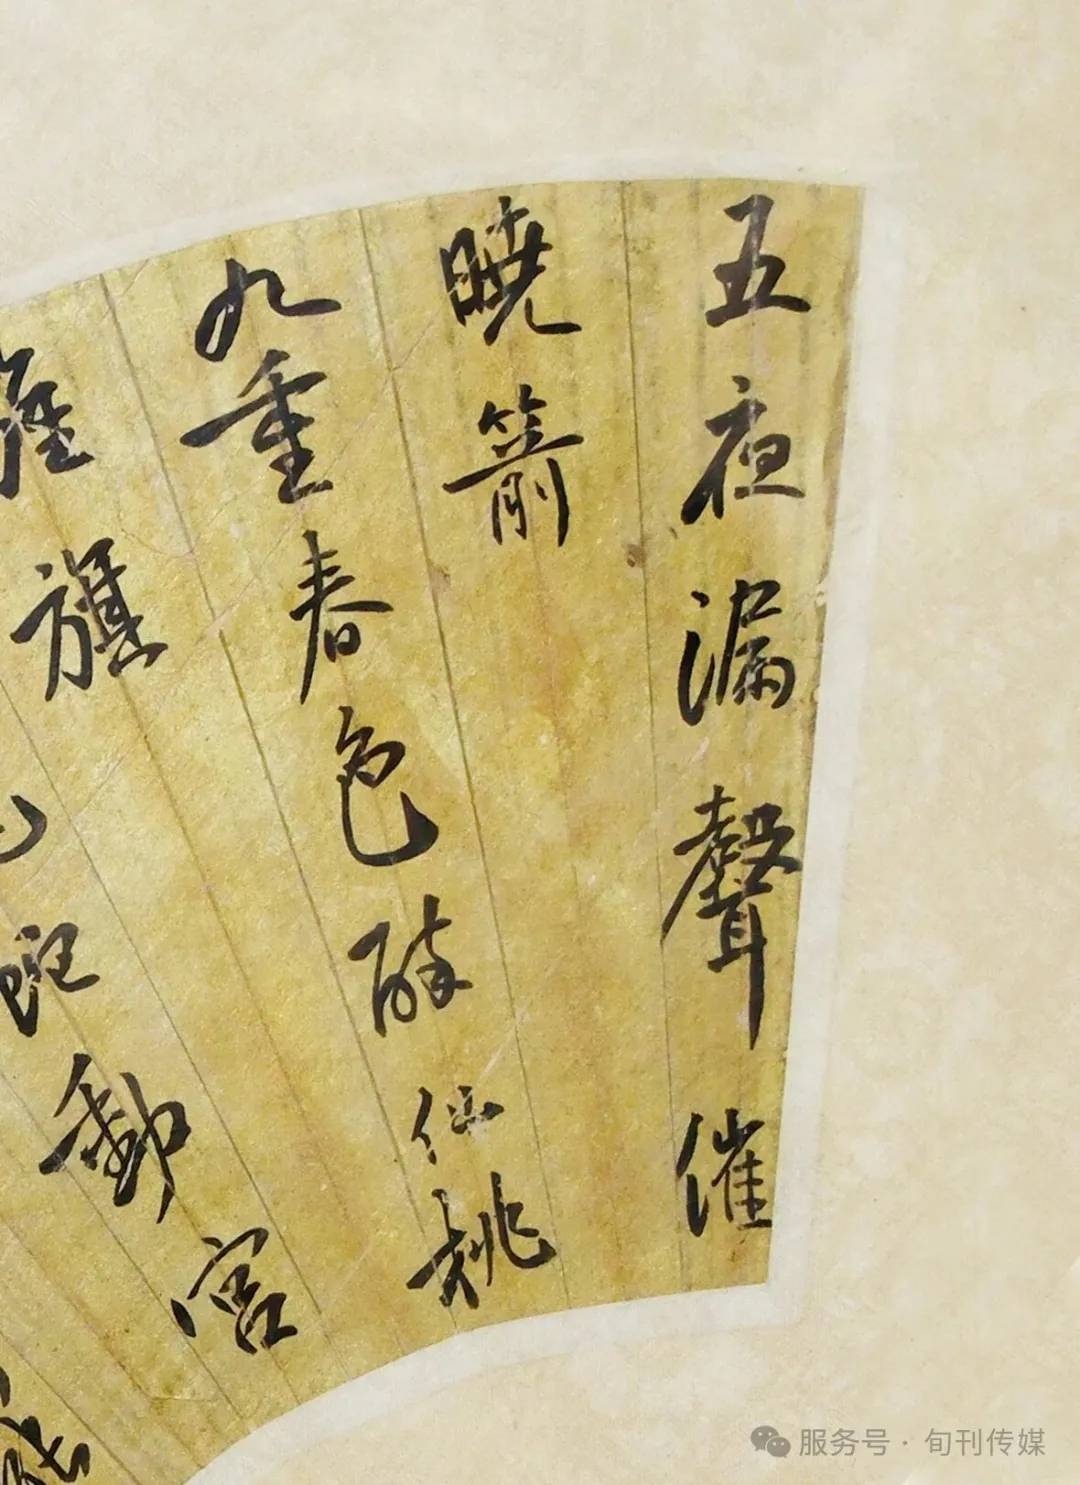 五夜漏聲催
曉箭
九重春色醉仙桃
旌旗
蛇動宮
服务号 · 旬刊传媒